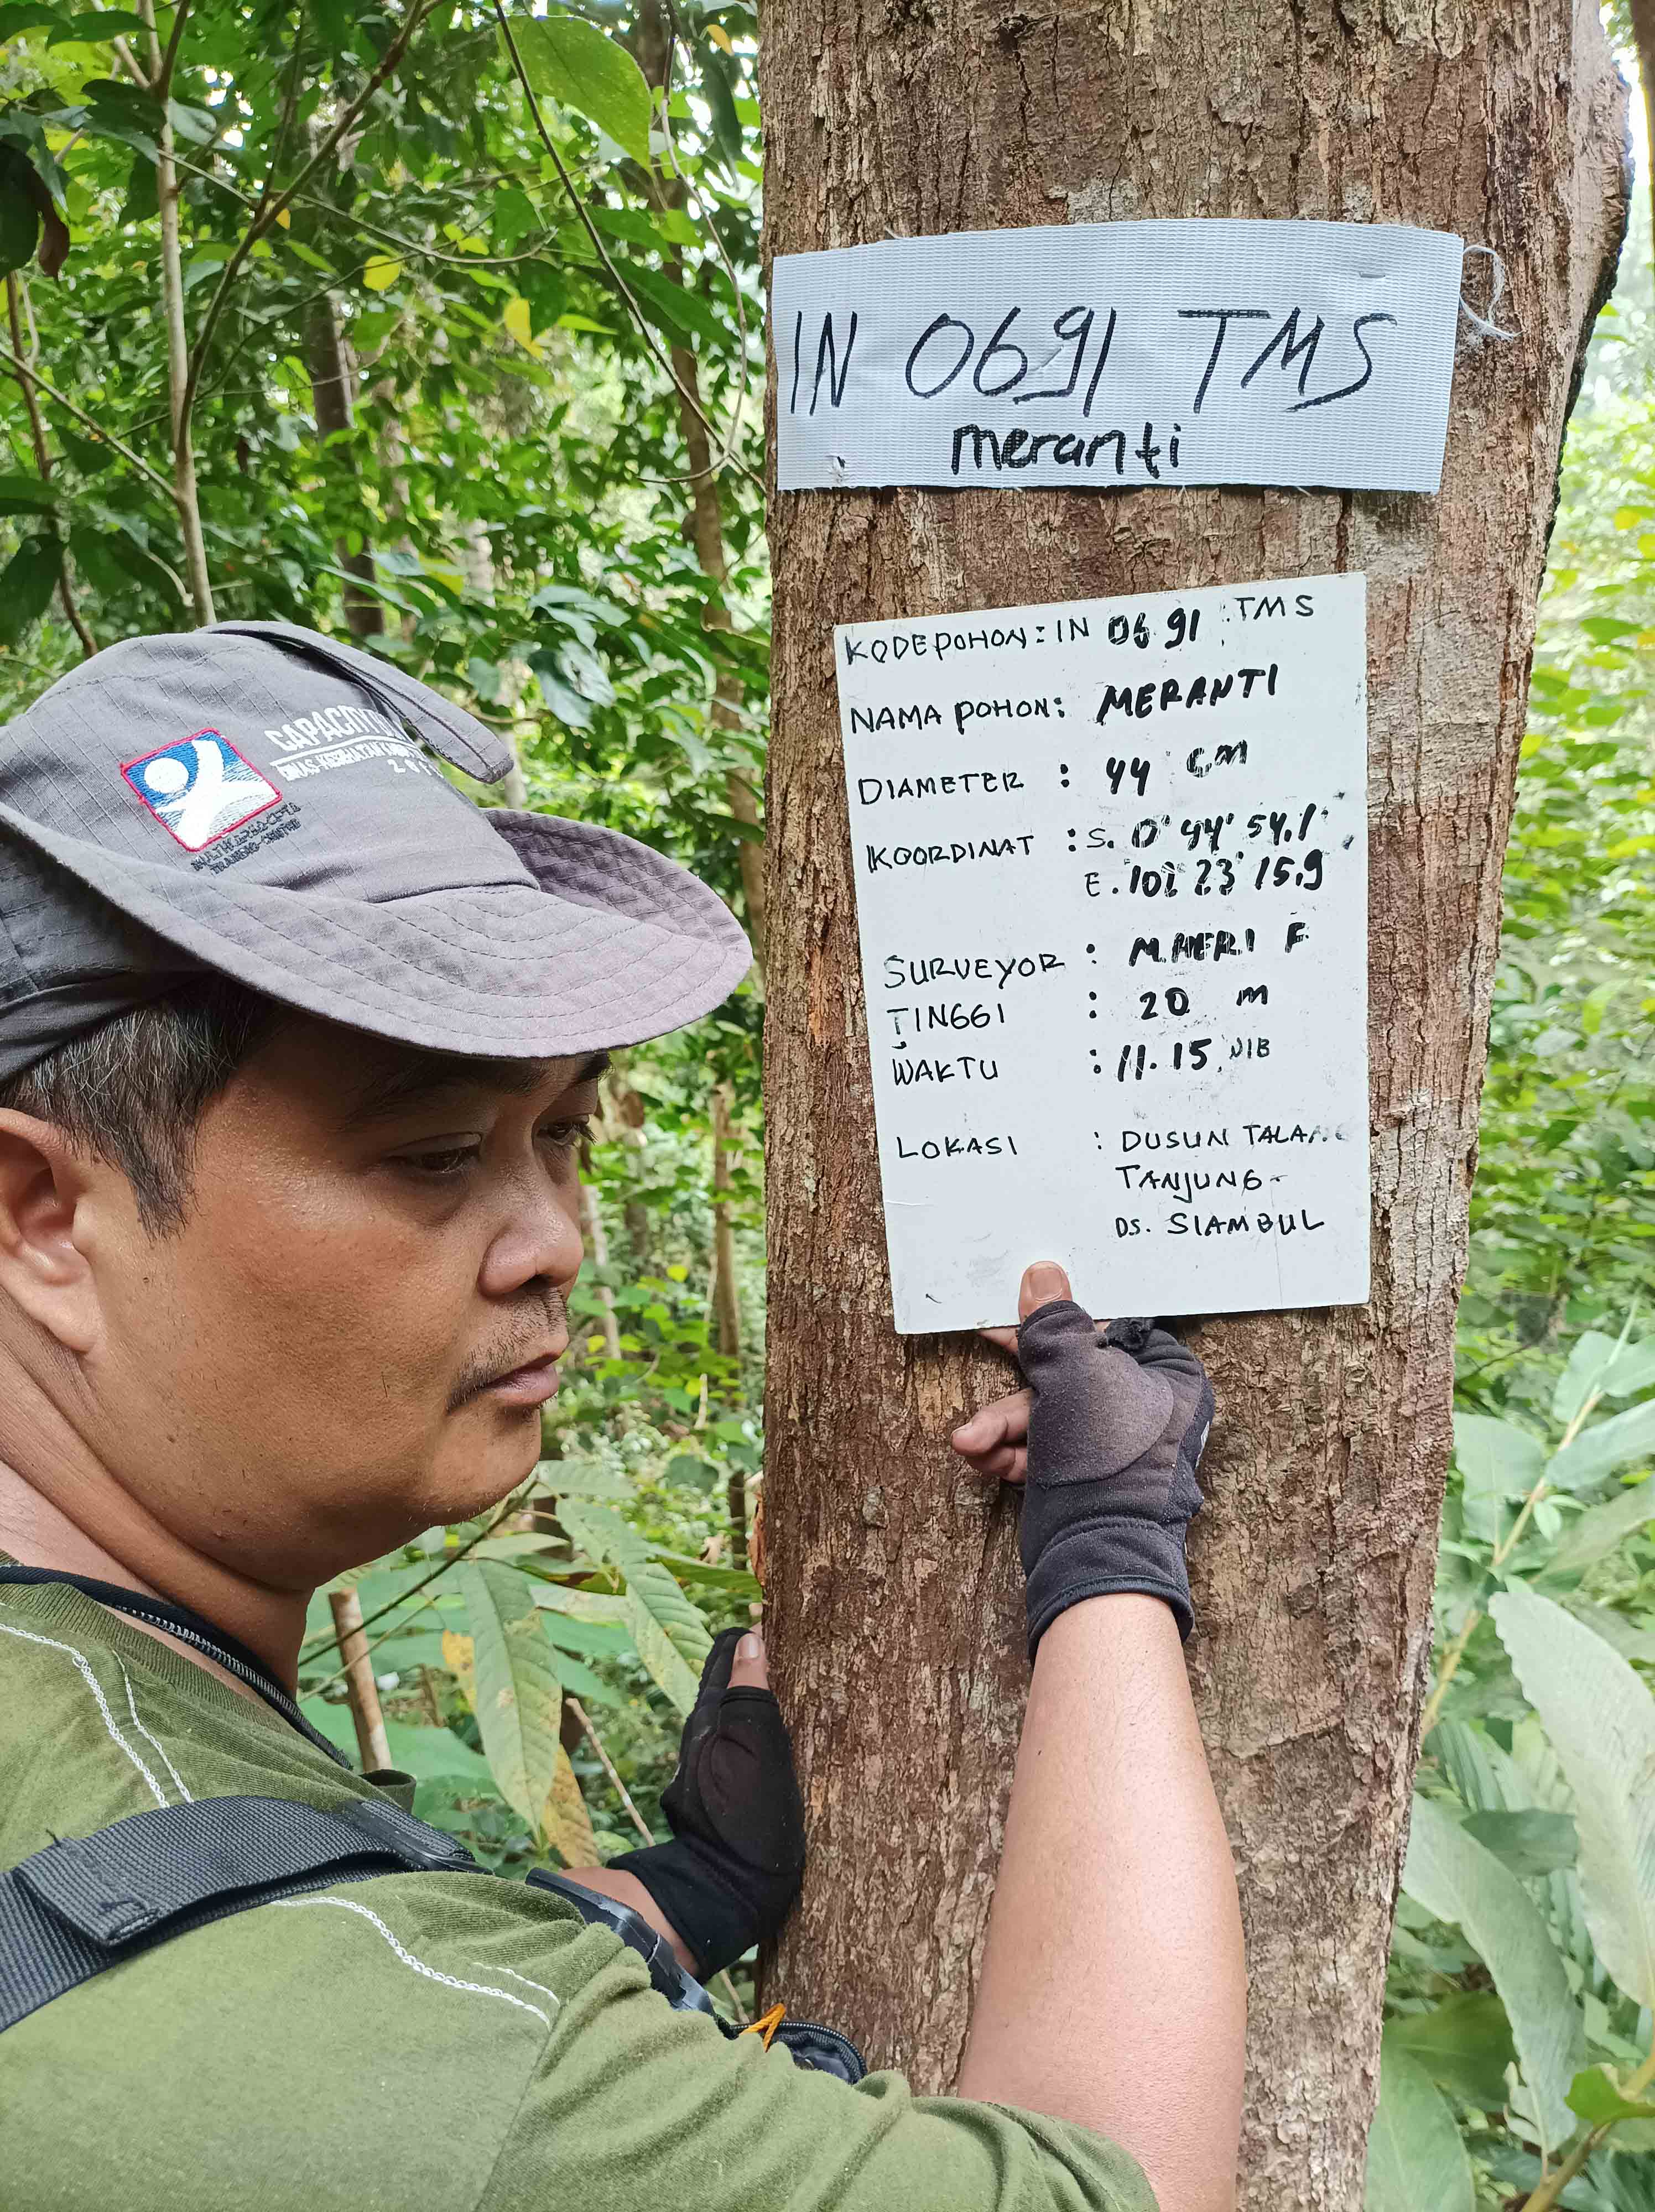 IN 0691 TMS
meranti
KODE POHON : IN 0691 TMS
NAMA POHON : MERANTI
DIAMETER : 44 CM
KOORDINAT : S. 0° 44' 54,1"
E. 102 23' 15,9
SURVEYOR : M. HERI F
TINGGI : 20 m
WAKTU : 11.15 WIB
LOKASI : DUSUN TALANG
TANJUNG-
DS. SIAMBUL
CAPACITY
TRAINING CENTRE